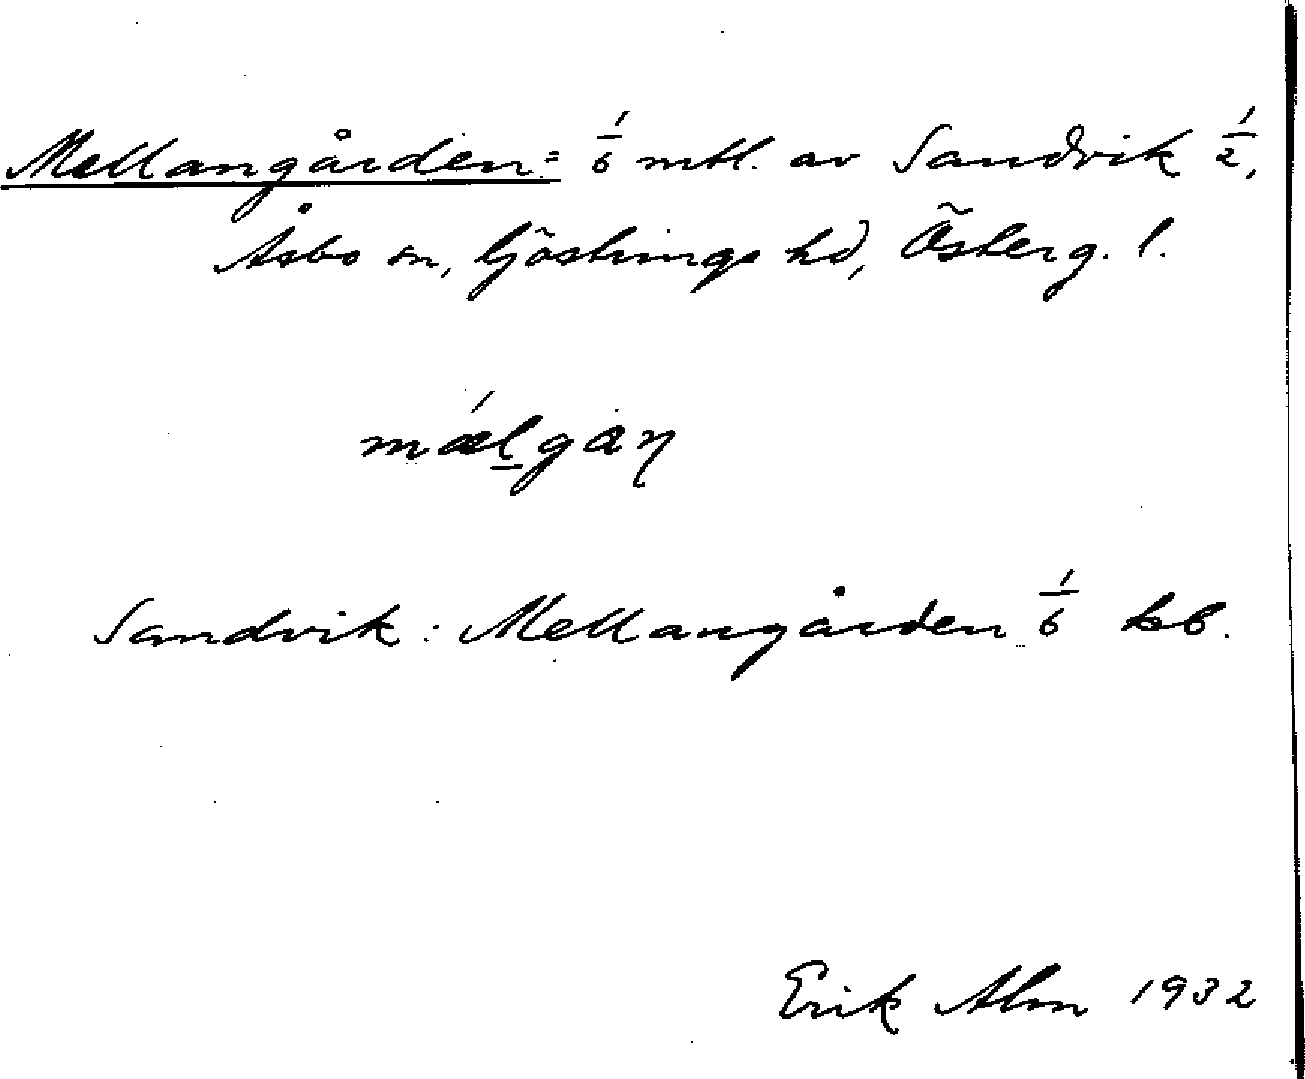 Mellangården = 1/6 mtl. av Sandvik 1/2,
Åsbo sn, Göstrings hd, Österg. l.
mǽlgan
Sandvik: Mellangården 1/6 kb.
Erik Alm 1932